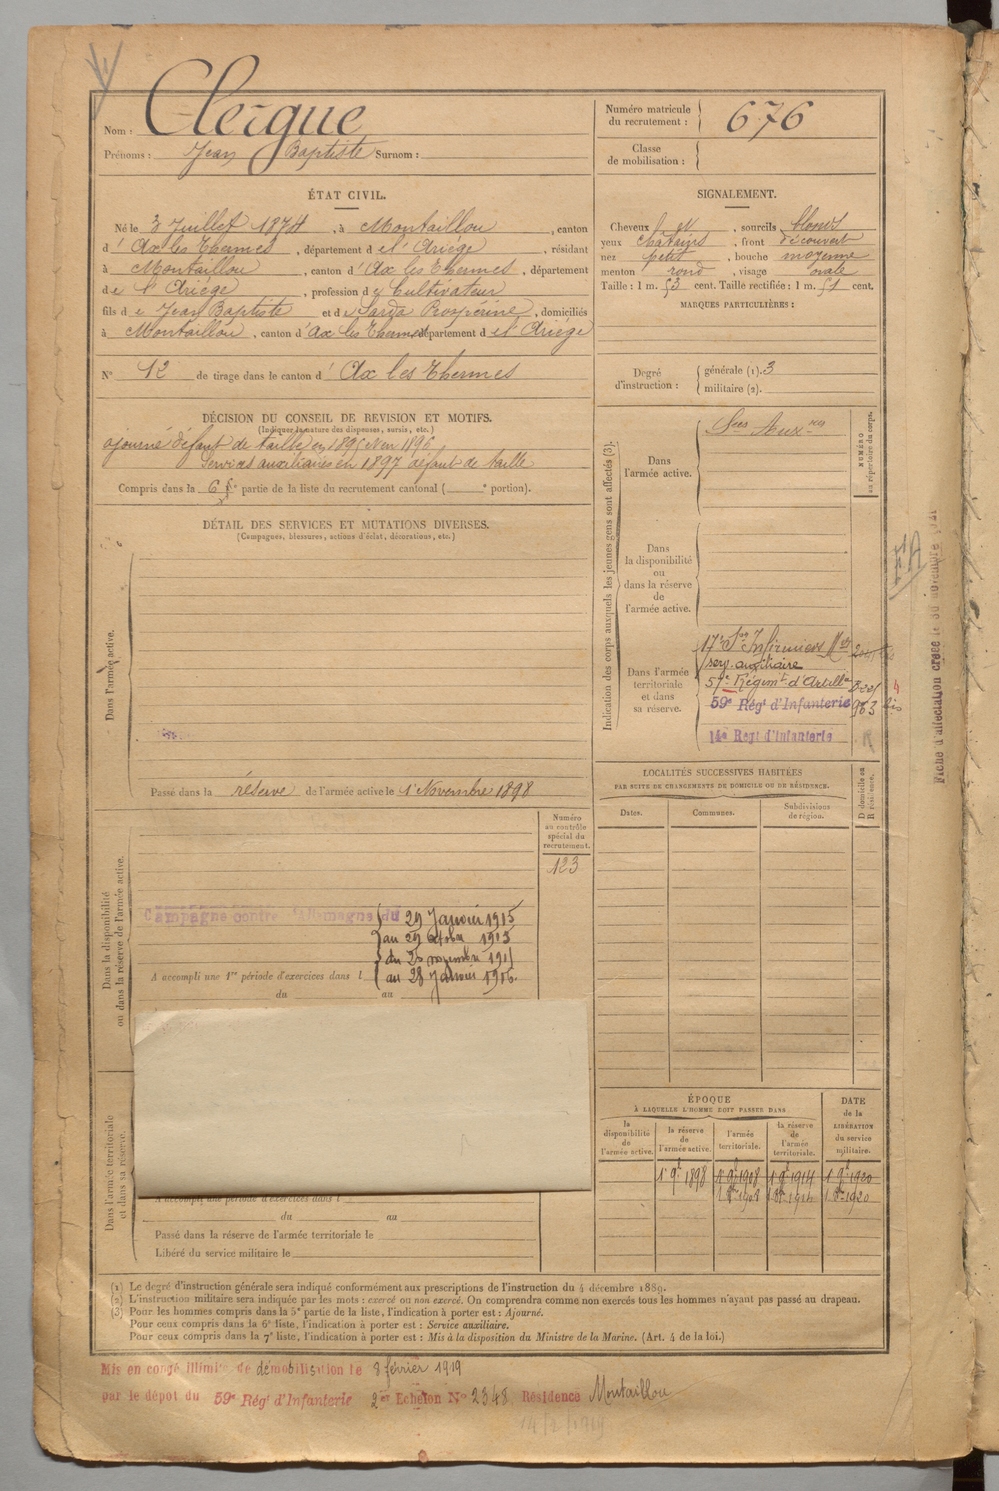 Nom : Clergue
Prénoms : Jean Baptiste Surnom :
Numéro matricule du recrutement : 676
Classe de mobilisation :
ÉTAT CIVIL.
Né le 3 Juillet 1874, à Montaillou, canton
d' Ax les Thermes, département de l'Ariége, résidant
à Montaillou, canton d' Ax les Thermes, département
de l'Ariége, profession de Cultivateur
fils de Jean Baptiste et de Sarda Prosperine, domiciliés
à Montaillou, canton d' Ax les Thermes département de l'Ariége
N° 12 de tirage dans le canton d' Ax les Thermes
SIGNALEMENT.
Cheveux et, sourcils blonds
yeux chatains, front découvert
nez petit, bouche moyenne
menton rond, visage ovale
Taille : 1 m. 53 cent. Taille rectifiée : 1 m. 51 cent.
MARQUES PARTICULIÈRES :
Degré d'instruction : générale (1). 3
militaire (2).
DÉCISION DU CONSEIL DE REVISION ET MOTIFS.
(Indiquer la nature des dispenses, sursis, etc.)
ajourné défaut de taille en 1895 et en 1896
Services auxiliaires en 1897 défaut de taille
Compris dans la 6e partie de la liste du recrutement cantonal ( e portion).
DÉTAIL DES SERVICES ET MUTATIONS DIVERSES.
(Campagnes, blessures, actions d'éclat, décorations, etc.)
Dans l'armée active.
Passé dans la réserve de l'armée active le 1 Novembre 1898
Indication des corps auxquels les jeunes gens sont affectés (3).
NUMÉRO au répertoire du corps.
Dans l'armée active.
Sces Auxres
Dans la disponibilité ou dans la réserve de l'armée active.
Dans l'armée territoriale et dans sa réserve.
17e Son Infirmiers Mres
serv. auxiliaire
57e Régimt d'Artille
59e Régt d'Infanterie 963 bis
14e Regt d'Infanterie R
FA
Fiche d'affectation créée le 30 novembre
LOCALITÉS SUCCESSIVES HABITÉES
PAR SUITE DE CHANGEMENTS DE DOMICILE OU DE RÉSIDENCE.
Dates.
Communes.
Subdivisions de région.
D domicile ou R résidence.
Dans la disponibilité ou dans la réserve de l'armée active.
Numéro au contrôle spécial du recrutement.
123
Campagne contre l'Allemagne du 29 Janvier 1915
au 29 octobre 1915
du 20 novembre 1915
A accompli une 1re période d'exercices dans l
au 28 Janvier 1916.
du au
Dans l'armée territoriale et dans sa réserve.
A accompli une période d'exercices dans l
du au
Passé dans la réserve de l'armée territoriale le
Libéré du service militaire le
ÉPOQUE
À LAQUELLE L'HOMME DOIT PASSER DANS
la disponibilité de l'armée active.
la réserve de l'armée active.
l'armée territoriale.
la réserve de l'armée territoriale.
DATE de la LIBÉRATION du service militaire.
1 9e 1898 1 9e 1908 1 9e 1914 1 9e 1920
1 8bre 1908 1 8bre 1914 1 8bre 1920
(1) Le degré d'instruction générale sera indiqué conformément aux prescriptions de l'instruction du 4 décembre 1889.
(2) L'instruction militaire sera indiquée par les mots : exercé ou non exercé. On comprendra comme non exercés tous les hommes n'ayant pas passé au drapeau.
(3) Pour les hommes compris dans la 5e partie de la liste, l'indication à porter est : Ajourné.
Pour ceux compris dans la 6e liste, l'indication à porter est : Service auxiliaire.
Pour ceux compris dans la 7e liste, l'indication à porter est : Mis à la disposition du Ministre de la Marine. (Art. 4 de la loi.)
Mis en congé illimité de démobilisation le 8 février 1919
par le dépôt du 59e Régt d'Infanterie 2e Echelon No 2348. Résidence Montaillou